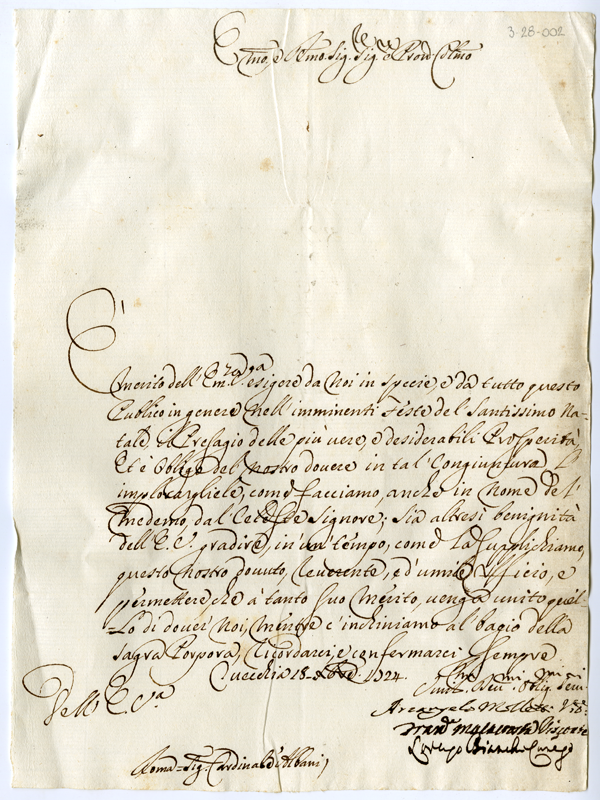 3-28-002
Em̃o, e Rmo. Sig. Sig.re e Pron Colmo
È merito dell' Em.za V.ra esigere da Noi in specie, e da tutto questo
Publico in genere nell' imminenti Feste del Santissimo Na-
tale il Presagio delle più vere, e desiderabili Prosperità,
Et è Obligo del nostro dovere in tal' Congiuntura l'
implorargliele, come facciamo, anche in Nome del'
Medemo, dal Celeste Signore; Sia altresì benignità
dell' E. V. gradire, in un' tempo, come La supplichiamo,
questo nostro dovuto, Reverente, ed' umile Officio, e
permettere che à tanto suo Merito, venga unito quel-
Lo di dover Noi, Mentre c' inchiniamo al bagio della
Sagra Porpora, Ricordarci, e confermarci Sempre
Dell' E. V.ra
18 1724
Arcangelo
Lorenzo Bianchi
Roma = Sig. Cardinale Albani